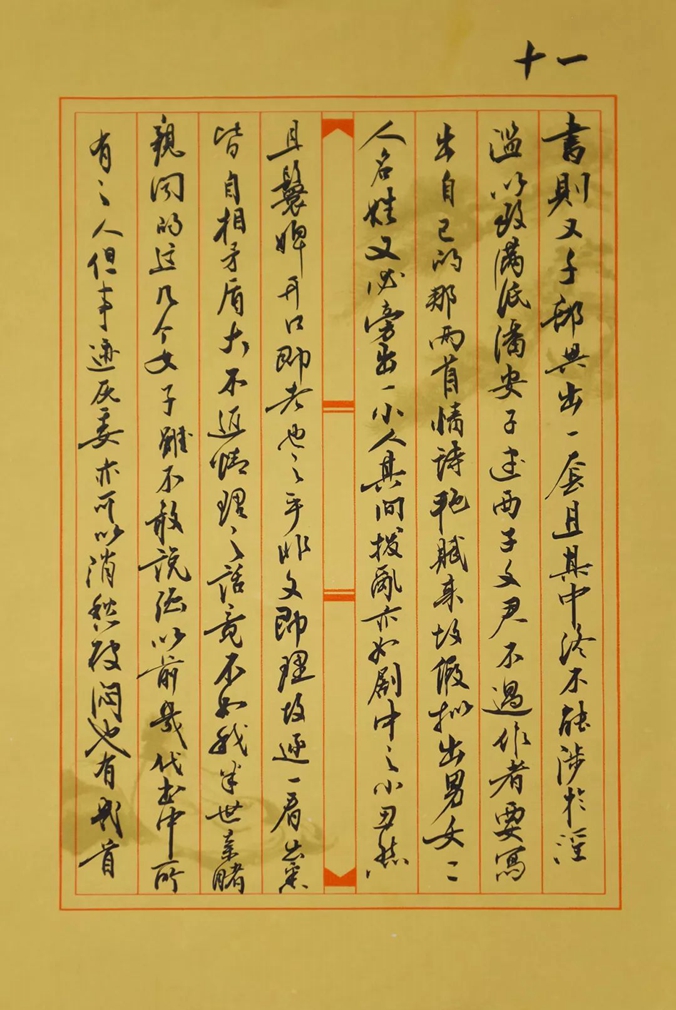 十一
書則又千部共出一套且其中終不能涉於淫
濫以致滿紙潘安子建西子文君不過作者要寫
出自己的那兩首情詩艷賦來故假拟出男女二
人名姓又必旁出一小人其間撥亂亦如劇中之小丑然
且鬟婢开口即者也之乎非文即理故逐一看去悉
皆自相矛盾大不近情理之話竟不如我半世亲睹
親闻的这几个女子雖不敢說强以前幾代书中所
有之人但事迹原委亦可以消愁破悶也有幾首